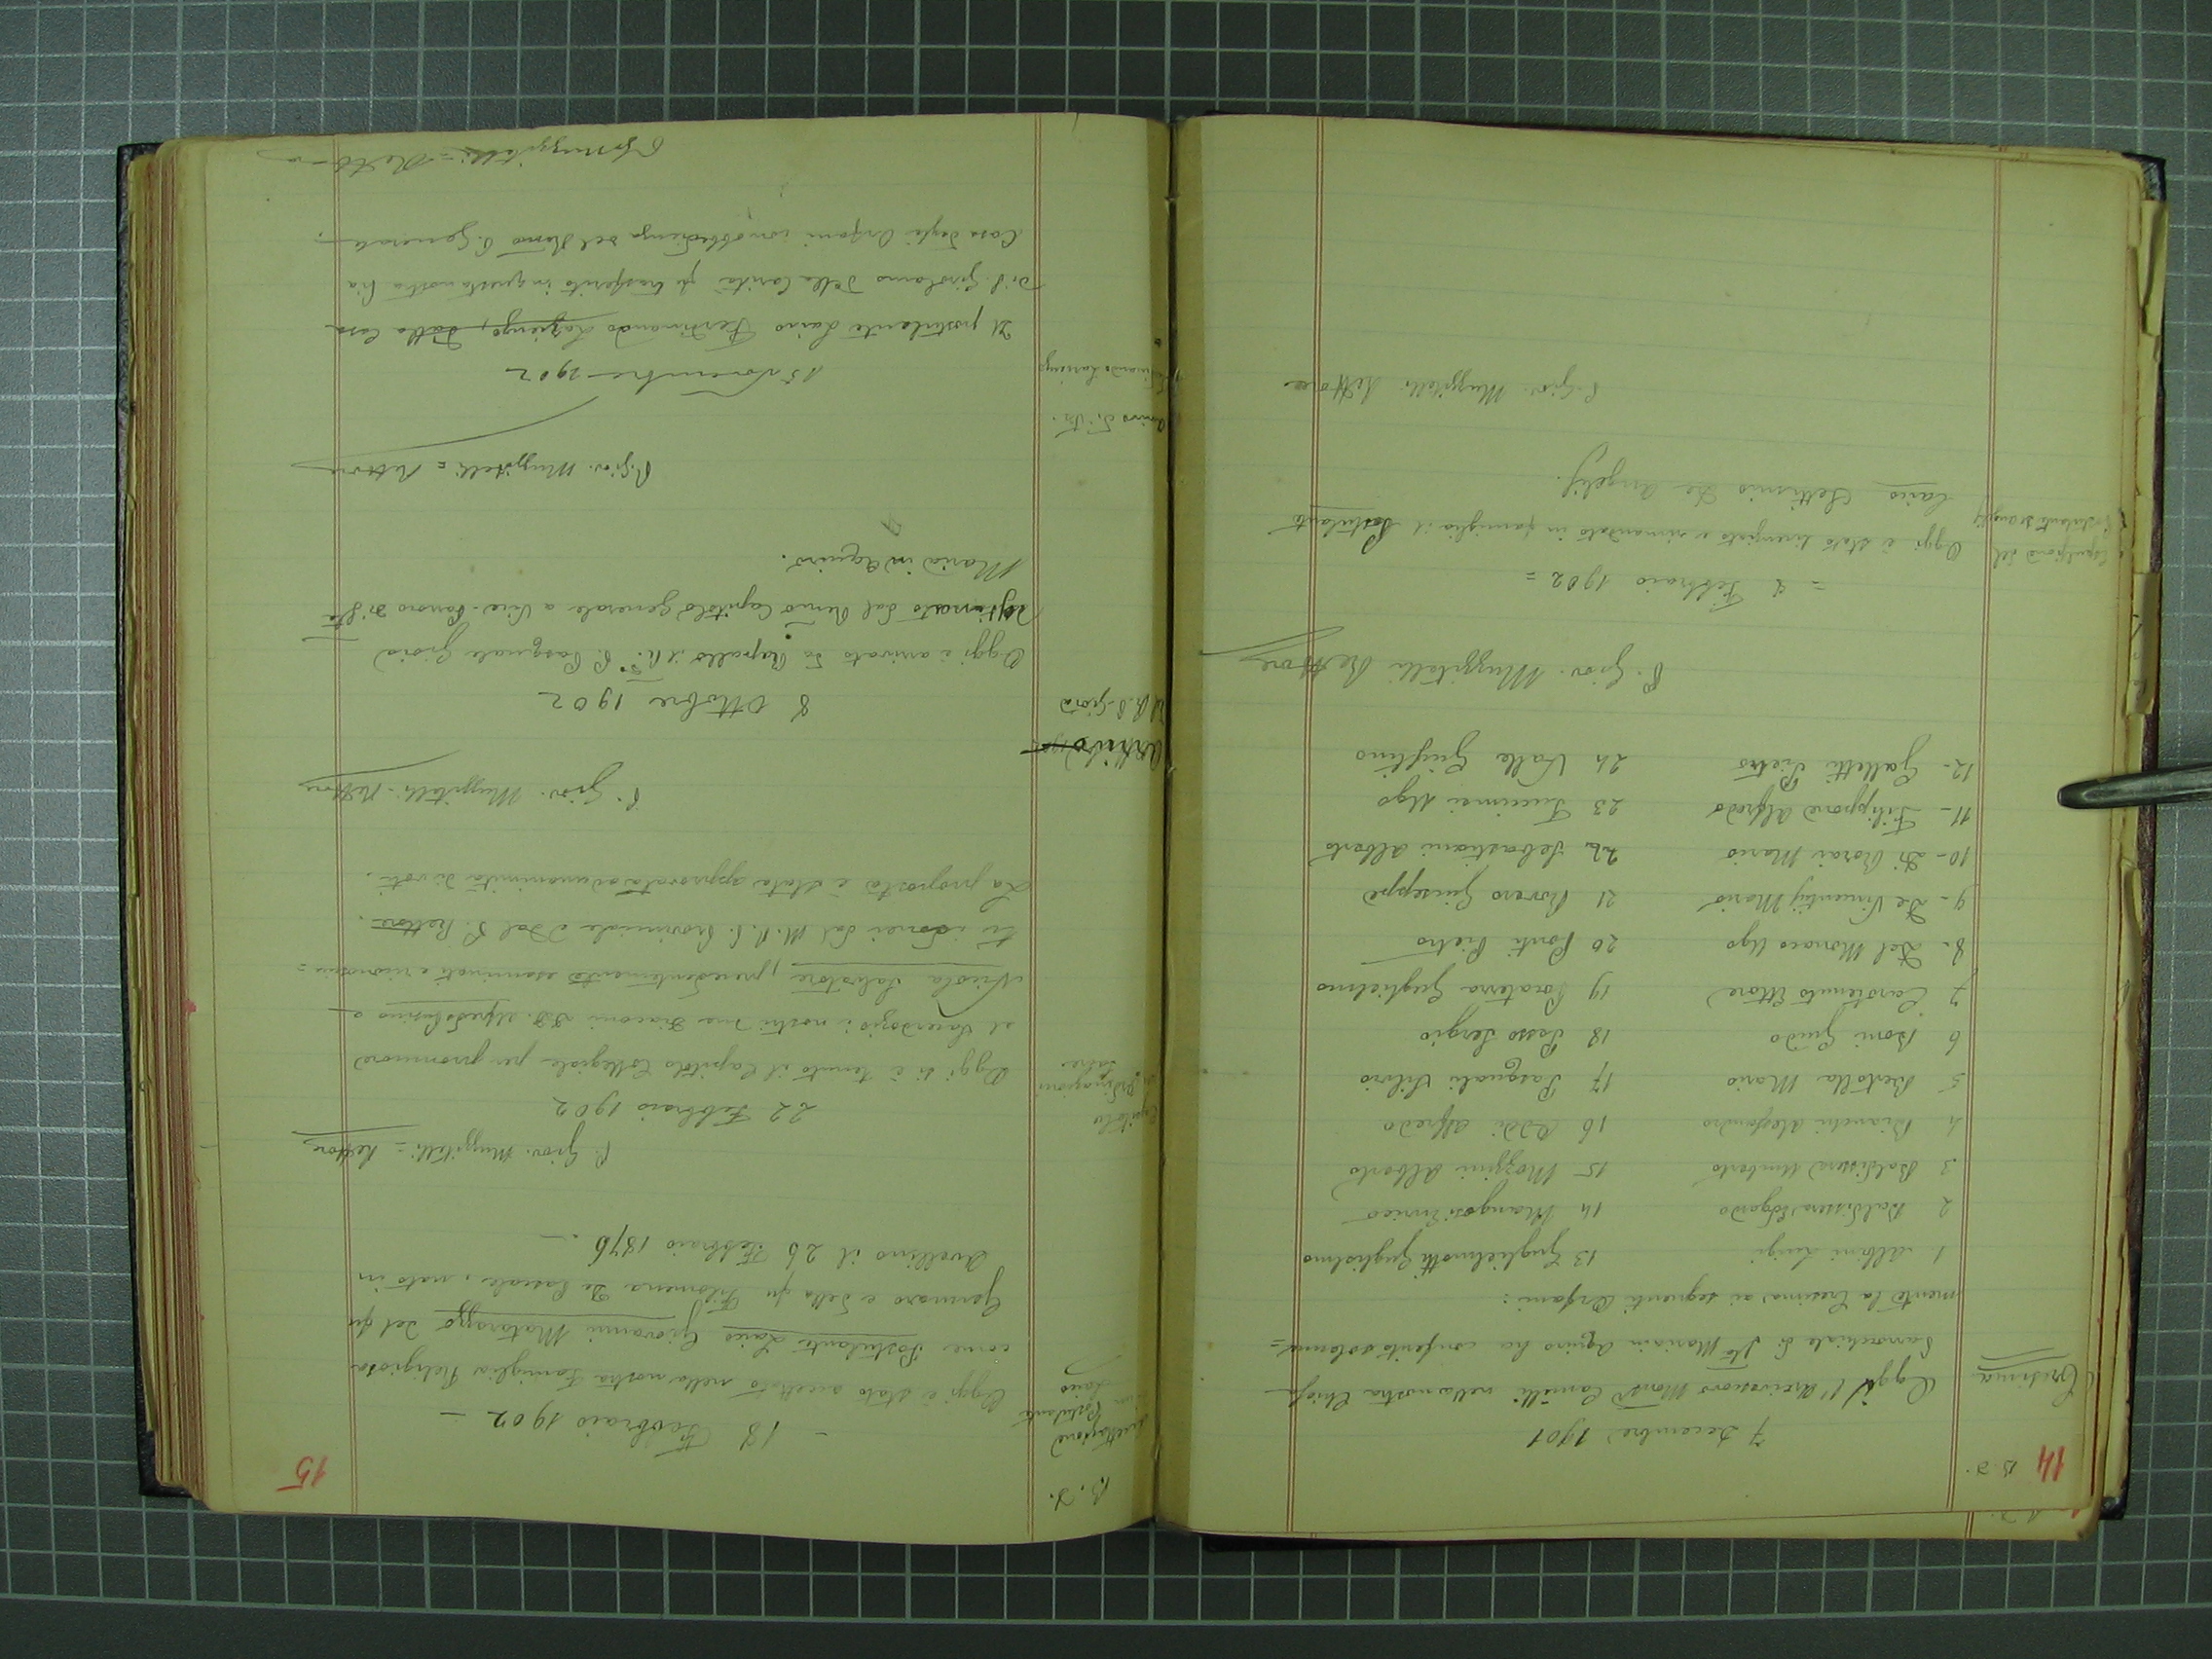 14
B. D.
7 Decembre 1901
Cresima
Oggi l'Arcivescovo Mons. Camilli nella nostra Chiesa
Parrochiale di Sta Maria in Aquiro ha conferito solenne=
mente la Cresima ai seguenti Orfani:
1 Albini Luigi
13 Guglielmotti Guglielmo
2 Baldissera Edgardo
14 Mangosi Enrico
3 Baldissera Umberto
15 Mozzini Alberto
4 Bianchi Alessandro
16 Oddi Alfredo
5 Bertolla Mario
17 Pasquali Silvio
6 Boni Guido
18 Passo Sergio
7 Carotenuto Ettore
19 Ponaterra Guglielmo
8- Del Monaco Ugo
20 Ponti Pietro
9- De Vincentiis Mario
21 Rovero Giuseppe
10- Di Rorai Mario
22 Sebastiani Alberto
11- Filippone Alfredo
23 Tuccimei Ugo
12- Galletti Pietro
24 Valle Giuglino
P. Giov. Muzzitelli Rettore
= 4 Febbraio 1902 =
Espulsione del
Postulante De Angelis
Oggi è stato licenziato e rimandato in famiglia il Postulante
laico Settimio De Angelis.
P. Giov. Muzzitelli Rettore
15
B. D.
- 18 Febbraio 1902 -
Accettazione
Postulante
Laico
Oggi è stato accettato nella nostra famiglia Religiosa
come Postulante Laico Giovanni Matarazzo del fu
Gennaro e della fu Filomena De Pascale, nato in
Avellino il 26 Febbraio 1876. -
P. Giov. Muzzitelli = Rettore
22 Febbraio 1902
Capitolo
Ordinazioni
Sacre
Oggi si è tenuto il Capitolo Collegiale per promuovere
al Sacerdozio i nostri due Diaconi DD. Alfredo Pusino e
Nicola Salvatore, precedentemente esaminati e riconosciu=
ti idonei dal M. R. P. Provinciale e dal P. Rettore.
La proposta è stata approvata ad unanimità di voti.
P. Giov. Muzzitelli - Rettore
8 Ottobre 1902
Arrivo
del R. P. Gioia
Oggi è arrivato da Rapallo il R. P. D. Pasquale Gioia
destinato dal Revmo Capitolo Generale a Vice-Parroco di Sta
Maria in Aquiro.
P. Giov. Muzzitelli = Rettore
15 Novembre 1902
Arrivo di
Ferdinando Laziengo
Il postulante Laico Ferdinando Laziengo, dalla Casa
di S. Girolamo della Carità fu trasferito in questa nostra Pia
Casa degli Orfani con obbedienza del Revmo P. Generale.
G. Muzzitelli = Rettore